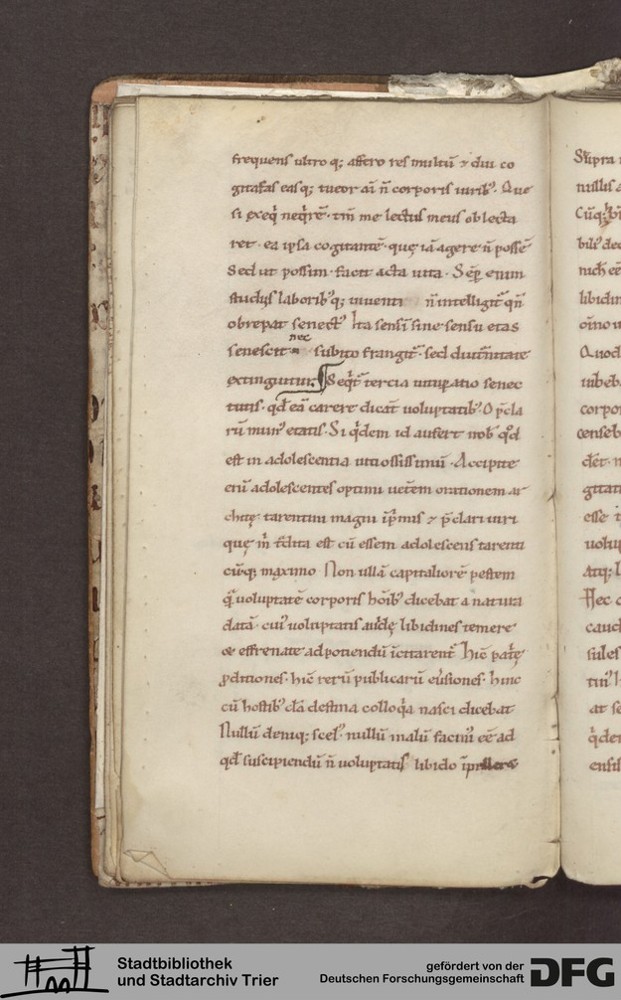 frequens ultro q; affero res multū ⁊ diu co
gitatas eas q; tueor ai n̄ corporis uirib;. Que
si exeq̇ neq̇rē. tm̄ me lectus meus oblecta
ret. ea ipsa cogitantē. quę iā agere n̄ possē
Sed ut possim. facit acta uita. Sēp enim
studiis laborib; q; uiuenti n̄ intelligit̃ qn̄
obrepat senect᷒ Ita sensī sine sensu etas
senescit nec subito frangit̃. sed diut̃nitate
extinguitur. Seqt̃ tercia uitupatio senec
tutis. qd̄ eā carere dicāt uoluptatib;. O p̄cla
rū mun᷒ etatis. Si q̇dem id aufert nob̄. qd̄
est in adolescentia uitiosissimū. Accipite
eni adolescentes optimi uet̃em orationem ar
chitę tarentini magni īp̄mis ⁊ p̄clari uiri
quę m̄ t̃dita est cū essem adolescens tarenti
cū q; maximo Non ullā capitaliorē pestem
q̄ uoluptatē corporis hōib; dicebat a natura
datā. cui᷒ uoluptatis auidę libidines temere
& effrenate ad potiendū īcitarent̃ hic pat̃ę
ꝓditiones. hic rerū publicarū eu̓siones. hinc
cū hostib; clā destina colloq̇a nasci dicebat
Nullū deniq; scel᷒. nullū malū facin᷒ ēē ad
qd̄ suscipiendū n̄ uoluptatis libido īpellere
Supra
nullis
libidin
corpo
gitati
esse
uolup
atq;
Hec
cauc
sules
at se
q̇dem
ensis
Stadtbibliothek
und Stadtarchiv Trier
gefördert von der
Deutschen Forschungsgemeinschaft
DFG